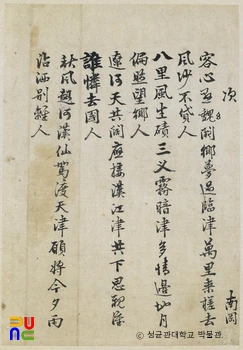 次
南岡
客心愁
鄉夢過臨津萬里來槎去
風沙不貸人
八里風生磧三义霧暗津多情邊地月
偏照望鄉人
遼河天共闊應接漢江津共下思親淚
誰憐去國人
秋風趙河漢仙駕渡天津願將今夕雨
沾洒別離人
성균관대학교 박물관